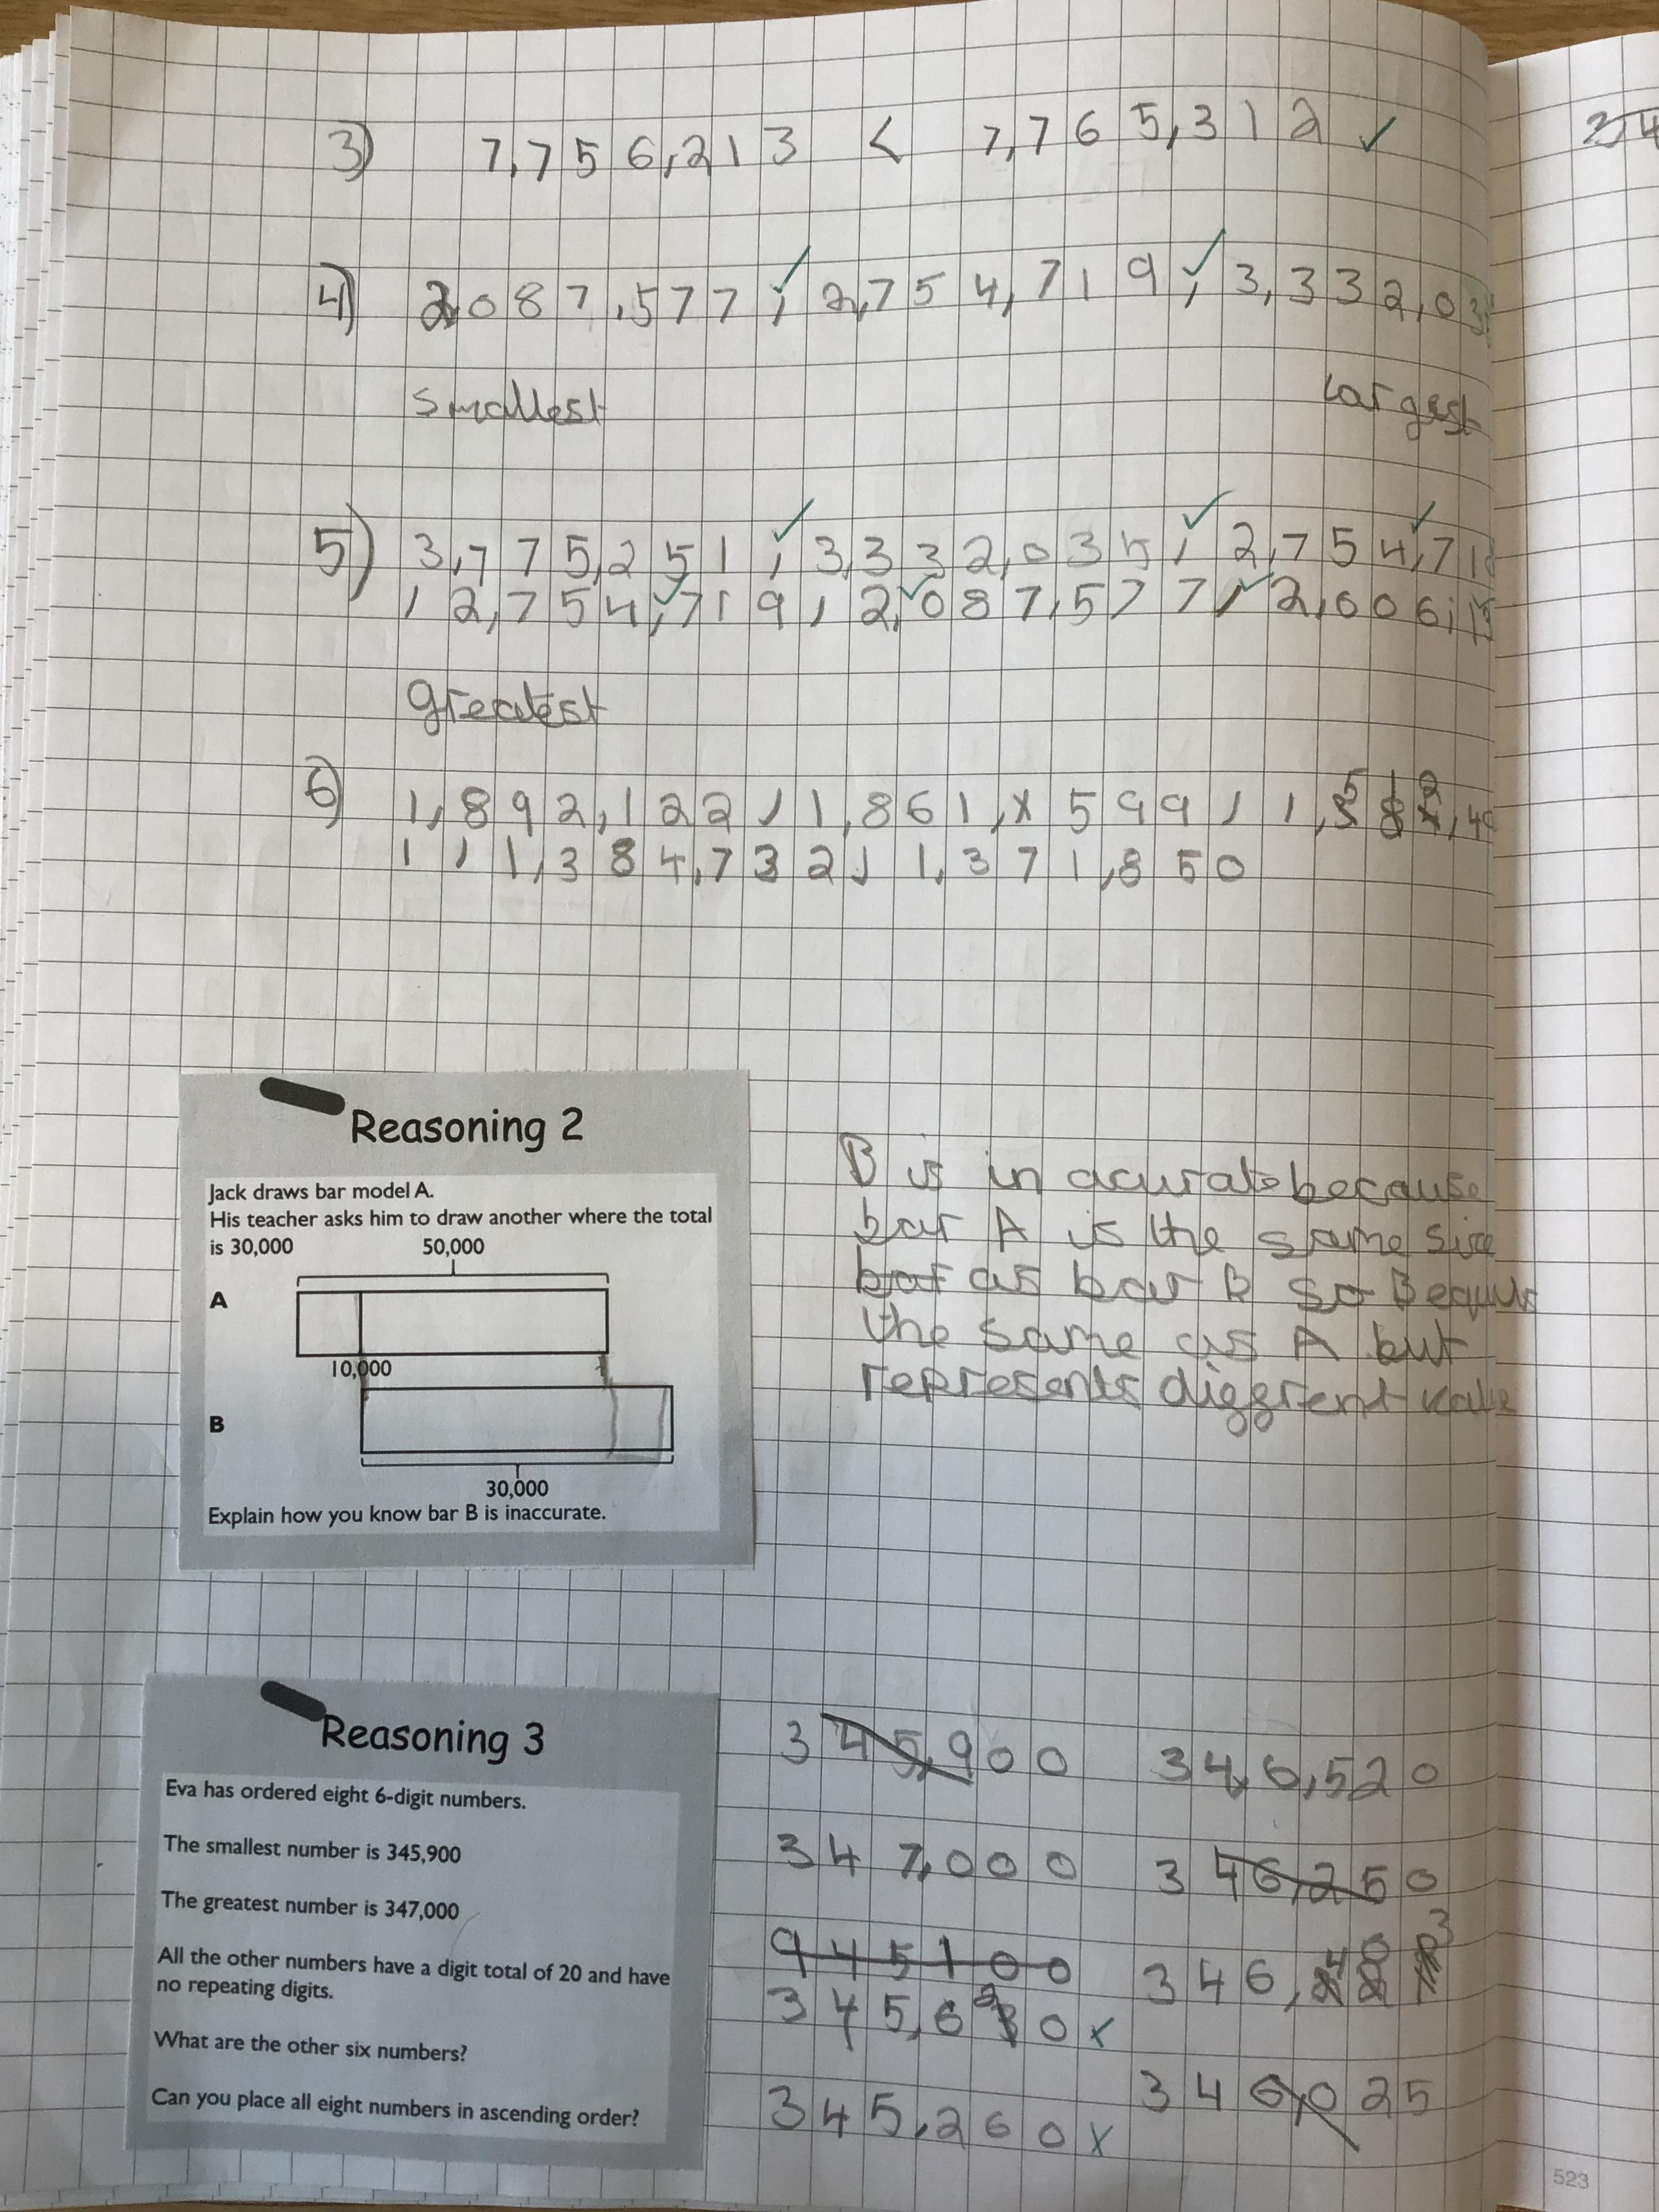 3) 7,756,213 < 7,765,312
4) 2087,577, 2,754,719, 3,332,03
smallest
largest
5) 3,775,251, 3,332,035, 2,754,71
, 2,754,719, 2,087,577, 2,006,
greatest
6) 1,892,122, 1,861,599, 1,512,40
1, 1,384,732, 1,371,850
Reasoning 2
Jack draws bar model A.
His teacher asks him to draw another where the total
is 30,000
50,000
A
10,000
B
30,000
Explain how you know bar B is inaccurate.
B is in acurate because
bar A is the same size
bat as bar B so B equls
the same as A but
represents diggrent valu
Reasoning 3
Eva has ordered eight 6-digit numbers.
The smallest number is 345,900
The greatest number is 347,000
All the other numbers have a digit total of 20 and have
no repeating digits.
What are the other six numbers?
Can you place all eight numbers in ascending order?
345,900
346,520
347,000
346,250
945100
346,403
345,620
345,260
346,025
523